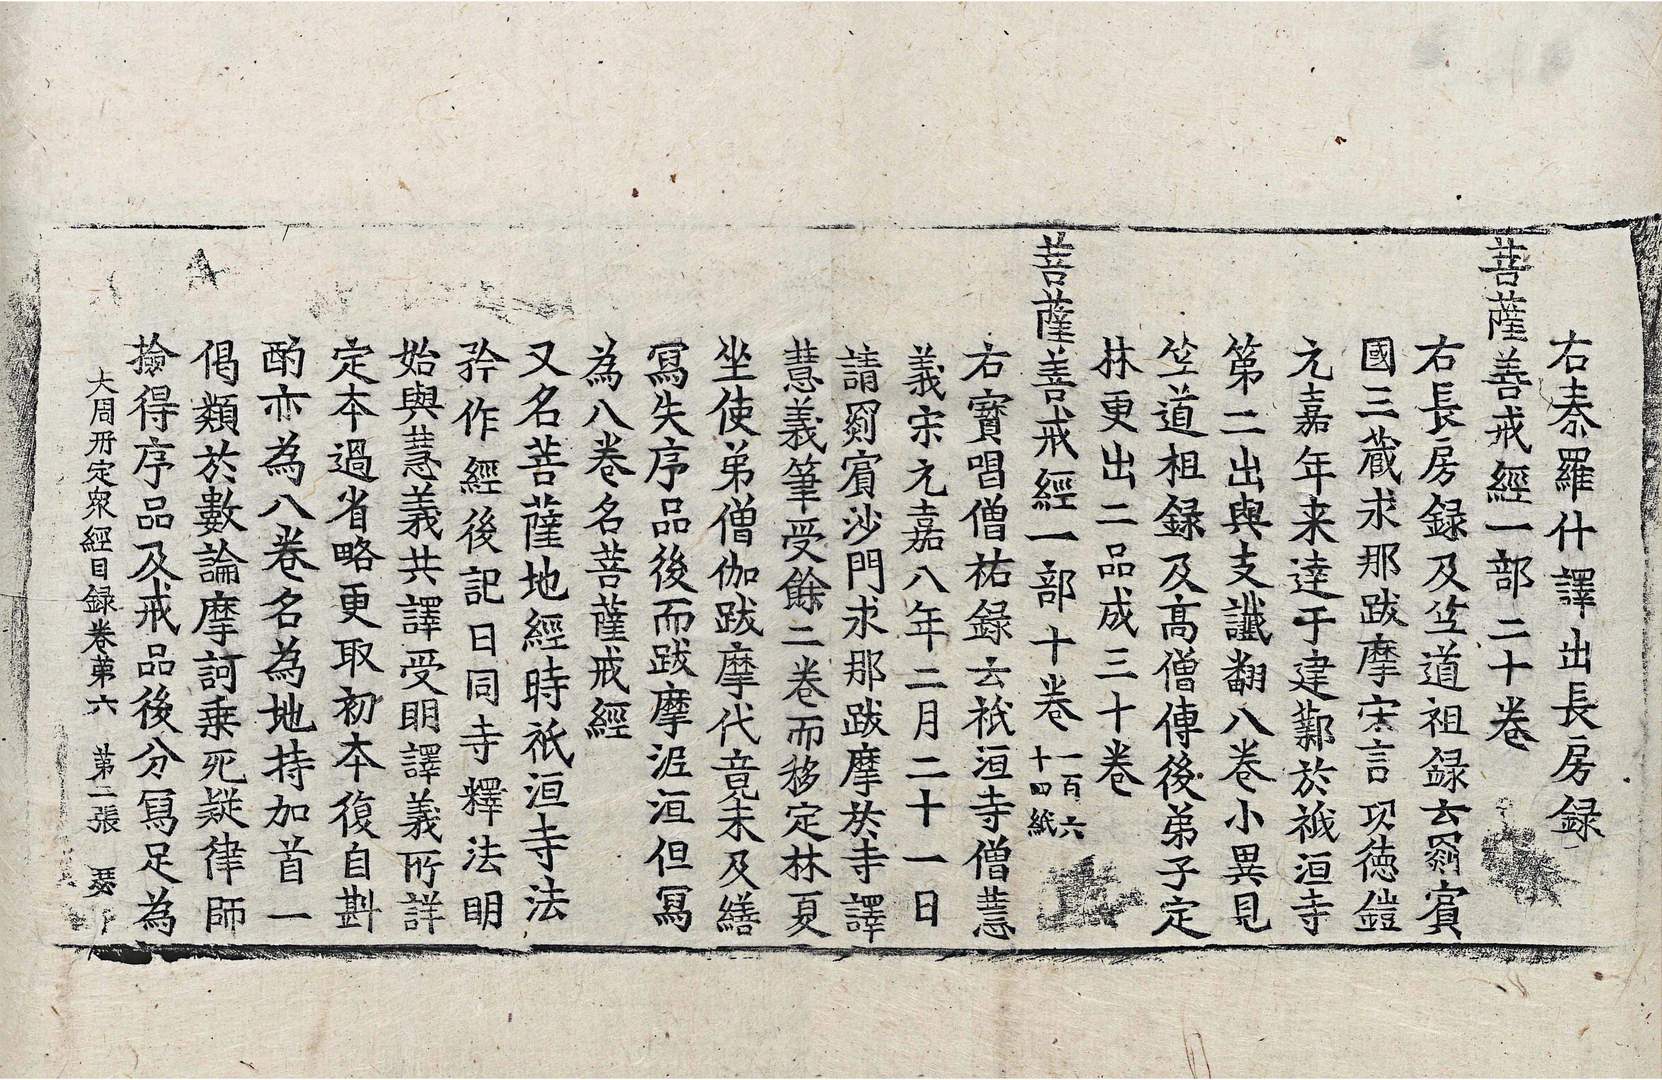 右秦羅什譯出長房録
菩薩善戒經一部二十卷
右長房録及竺道祖録云罽賓
國三藏求那跋摩宋言功徳鎧
元嘉年来達于建鄴於祇洹寺
第二出與支讖翻八卷小異見
竺道祖録及髙僧傳後弟子定
林更出二品成三十卷
菩薩善戒經一部十卷一百六十四紙
右寳唱僧祐録云祇洹寺僧慧
義宋元嘉八年二月二十一日
請罽賓沙門求那跋摩於寺譯
慧義筆受餘二卷而移定林夏
坐使弟僧伽跋摩代竟未及繕
冩失序品後而跋摩涅洹但冩
為八卷名菩薩戒經
又名菩薩地經時祇洹寺法
矜作經後記日同寺釋法明
始與慧義共譯受明譯義所詳
定本過省略更取初本復自斟
酌亦為八卷名為地持加首一
偈類於數論摩訶乗死疑律師
撿得序品及戒品後分冩足為
大周刊定衆經目録卷苐六 第二張 瑟